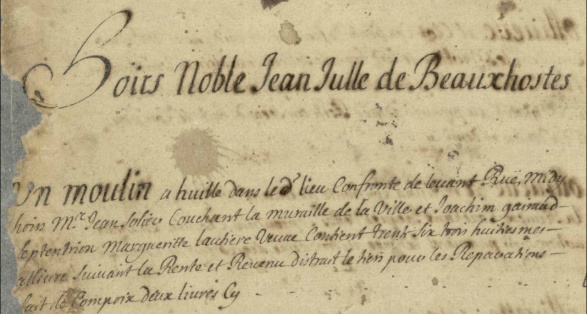 Hoirs Noble Jean Julle de Beauxhostes
Un moulin a huille dans le d. lieu Confronte de levant Rue, midy
hoirs Mr. Jean Couchant la muraille de la Ville et Joachim
septentrion Margueritte Veuve Contient trente six trois huities mes-
allivré suivant la Rente et Revenu distrait le tiers pour les Reparations-
fait de Compoix deux livres Cy